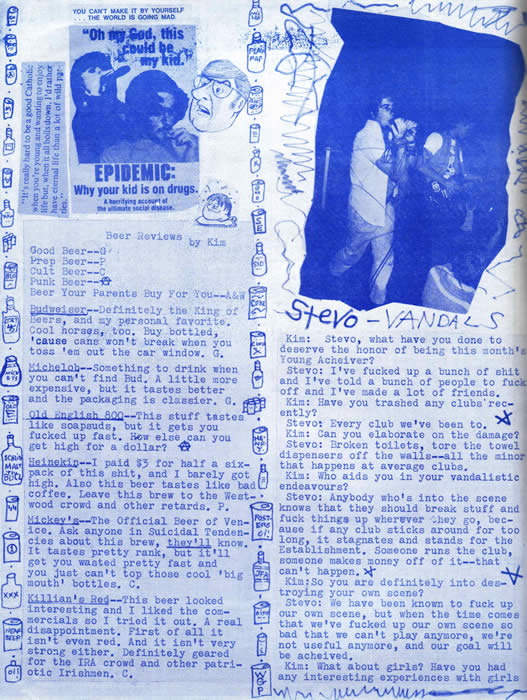 YOU CAN'T MAKE IT BY YOURSELF
... THE WORLD IS GOING MAD.
"Oh my God, this
could be
my kid."
"It's really hard to be a good Catholic
when you're young and wanting to enjoy
life but, when it all boils down, I'd rather
have eternal life than a lot of wild par-
ties."
EPIDEMIC:
Why your kid is on drugs.
A horrifying account of
the ultimate social disease.
Beer Reviews
by Kim
Good Beer--G
Prep Beer--P
Cult Beer--C
Punk Beer--A
Beer Your Parents Buy For You--A&W
Budweiser--Definitely the King of
Beers, and my personal favorite.
Cool horses, too. Buy bottled,
'cause cans won't break when you
toss 'em out the car window. G.
Michelob--Something to drink when
you can't find Bud. A little more
expensive, but it tastes better
and the packaging is classier. G.
Old English 800--This stuff tastes
like soapsuds, but it gets you
fucked up fast. How else can you
get high for a dollar? A
Heinekin--I paid $5 for half a six-
pack of this shit, and I barely got
high. Also this beer tastes like bad
coffee. Leave this brew to the West-
wood crowd and other retards. P.
Mickey's--The Official Beer of Ven-
ice. Ask anyone in Suicidal Tenden-
cies about this brew, they'll know.
It tastes pretty rank, but it'll
get you wasted pretty fast and
you just can't top those cool 'big
mouth' bottles. C.
Killian's Red--This beer looked
interesting and I liked the com-
mercials so I tried it out. A real
disappointment. First of all it
isn't even red. And it isn't very
strong either. Definitely geared
for the IRA crowd and other patri-
otic Irishmen. C.
Stevo - VANDALS
Kim: Stevo, what have you done to
deserve the honor of being this month's
Young Acheiver?
Stevo: I've fucked up a bunch of shit
and I've told a bunch of people to fuck
off and I've made a lot of friends.
Kim: Have you trashed any clubs rec-
ently?
Stevo: Every club we've been to.
Kim: Can you elaborate on the damage?
Stevo: Broken toilets, tore the towel
dispensers off the walls--all the minor
that happens at average clubs.
Kim: Who aids you in your vandalistic
endeavours?
Stevo: Anybody who's into the scene
knows that they should break stuff and
fuck things up wherever they go, bec-
ause if any club sticks around for too
long, it stagnates and stands for the
Establishment. Someone runs the club,
someone makes money off of it--that
can't happen.
Kim:So you are definitely into des-
troying your own scene?
Stevo: We have been known to fuck up
our own scene, but when the time comes
that we've fucked up our own scene so
bad that we can't play anymore, we're
not useful anymore, and our goal will
be acheived.
Kim: What about girls? Have you had
any interesting experiences with girls